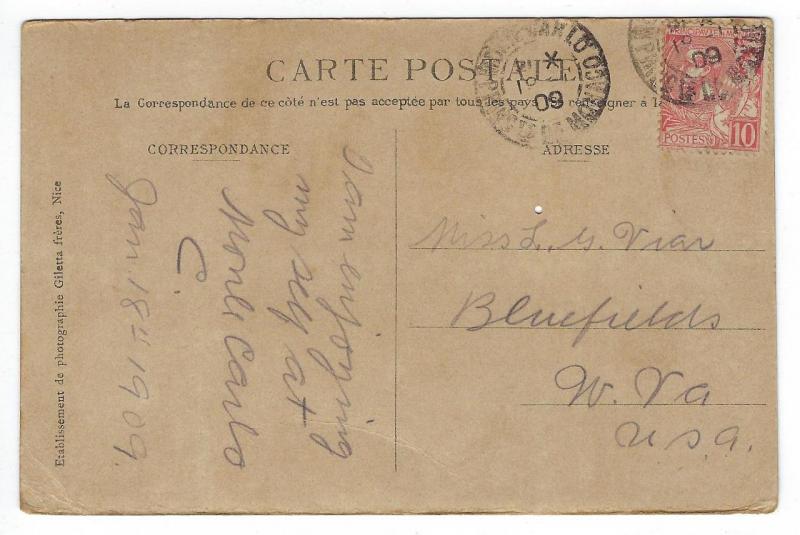 CARTE POSTALE
La Correspondance de ce côté n'est pas acceptée par tous les pays renseigner à la
CORRESPONDANCE
ADRESSE
I am enjoying
my self at
Monte Carlo
Jan. 18th 1909.
Miss L. G. Viar
Bluefields
W. Va
U.S.A.
Etablissement de photographie Giletta frères, Nice
POSTES 10
09
09